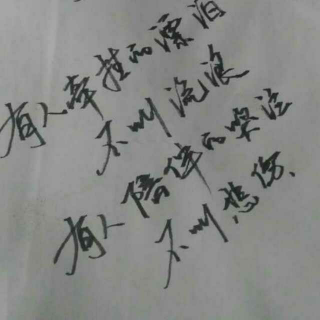 有人牵挂的漂泊
不叫流浪
有人陪伴的哭泣
不叫悲伤、